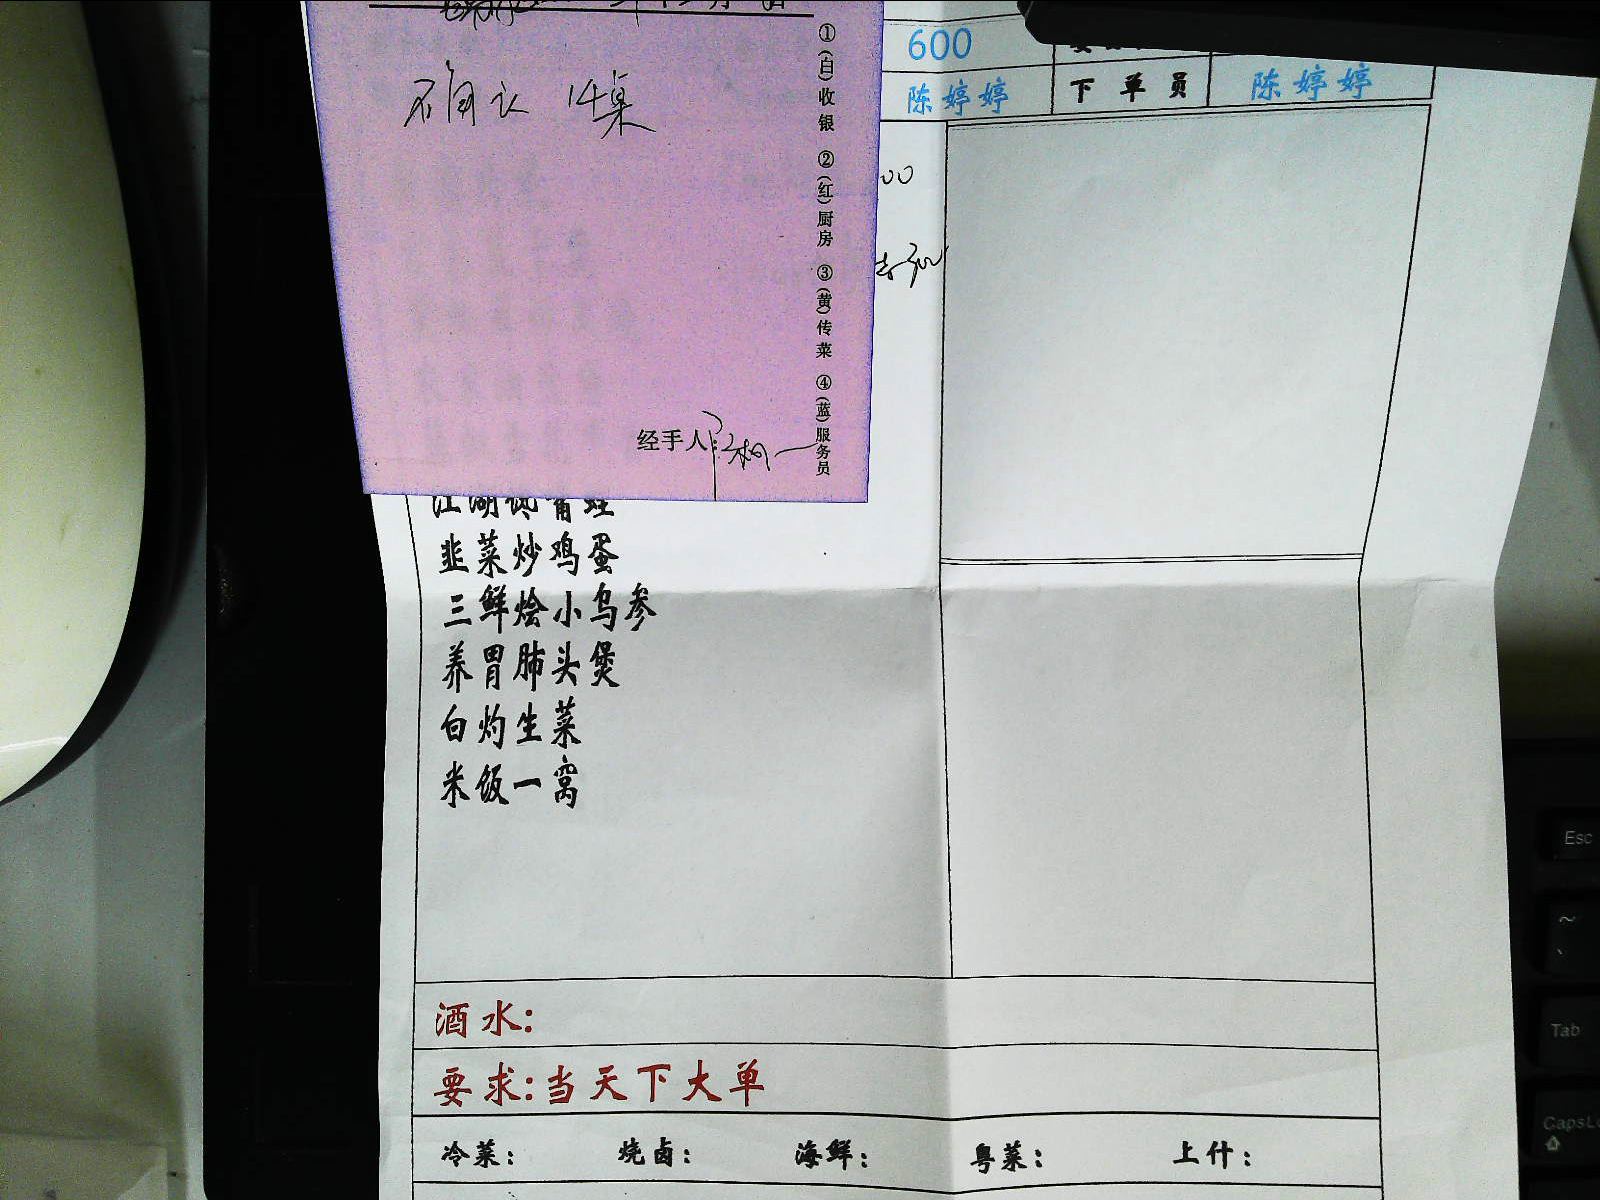 600
陈婷婷 下单员 陈婷婷
不确认 14桌
①(白)收银 ②(红)厨房 ③(黄)传菜 ④(蓝)服务员
00
经手人
韭菜炒鸡蛋
三鲜烩小乌参
养胃肺头煲
白灼生菜
米饭一窝
酒水:
要求:当天下大单
冷菜: 烧卤: 海鲜: 粤菜: 上什:
Esc
~
Tab